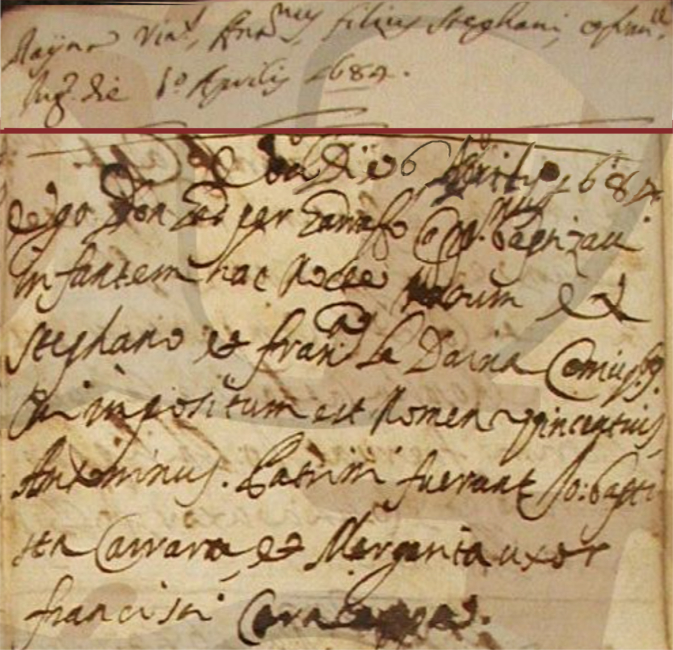 Rayna Vinc.s Ant.nus filius Stephani,
die p.o Aprilis 1684.
Die 6 Aprilis 1684.
ego Don per Cap.nus baptizavi
infantem hac nocte natum ex
Stephano et Fran.ca la Daina Coniugg.
Cui impositum est Nomen Vincentius,
Antoninus. Patrini fuerunt Jo: bapti
sta Carrara, et Margarita uxor
francisci